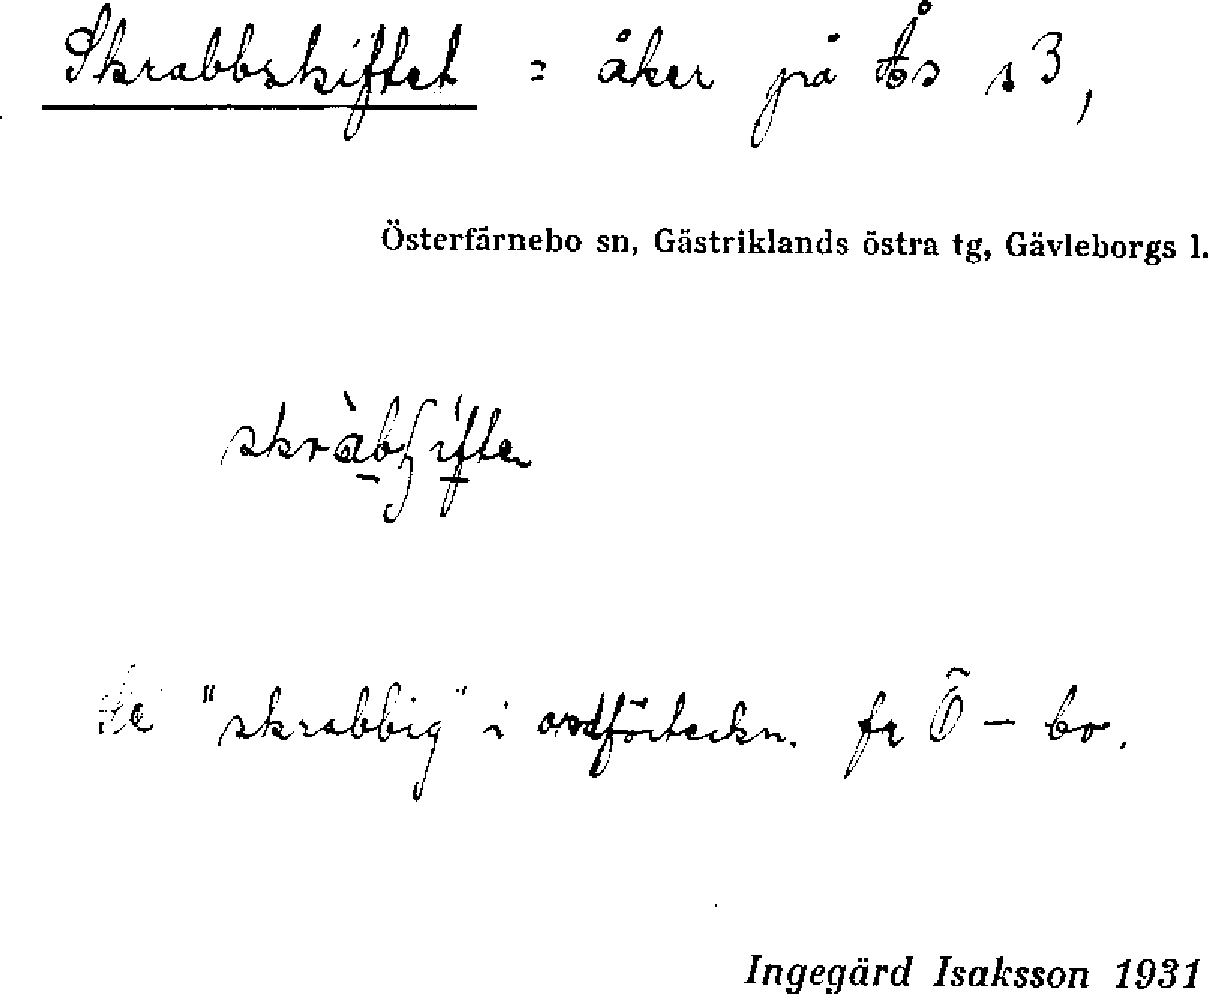 Skrabbskiftet = åker på Ås s 3,
Österfärnebo sn, Gästriklands östra tg, Gävleborgs l.
Se "skrabbig" i ordförteckn. fr Ö – bo.
Ingegärd Isaksson 1931